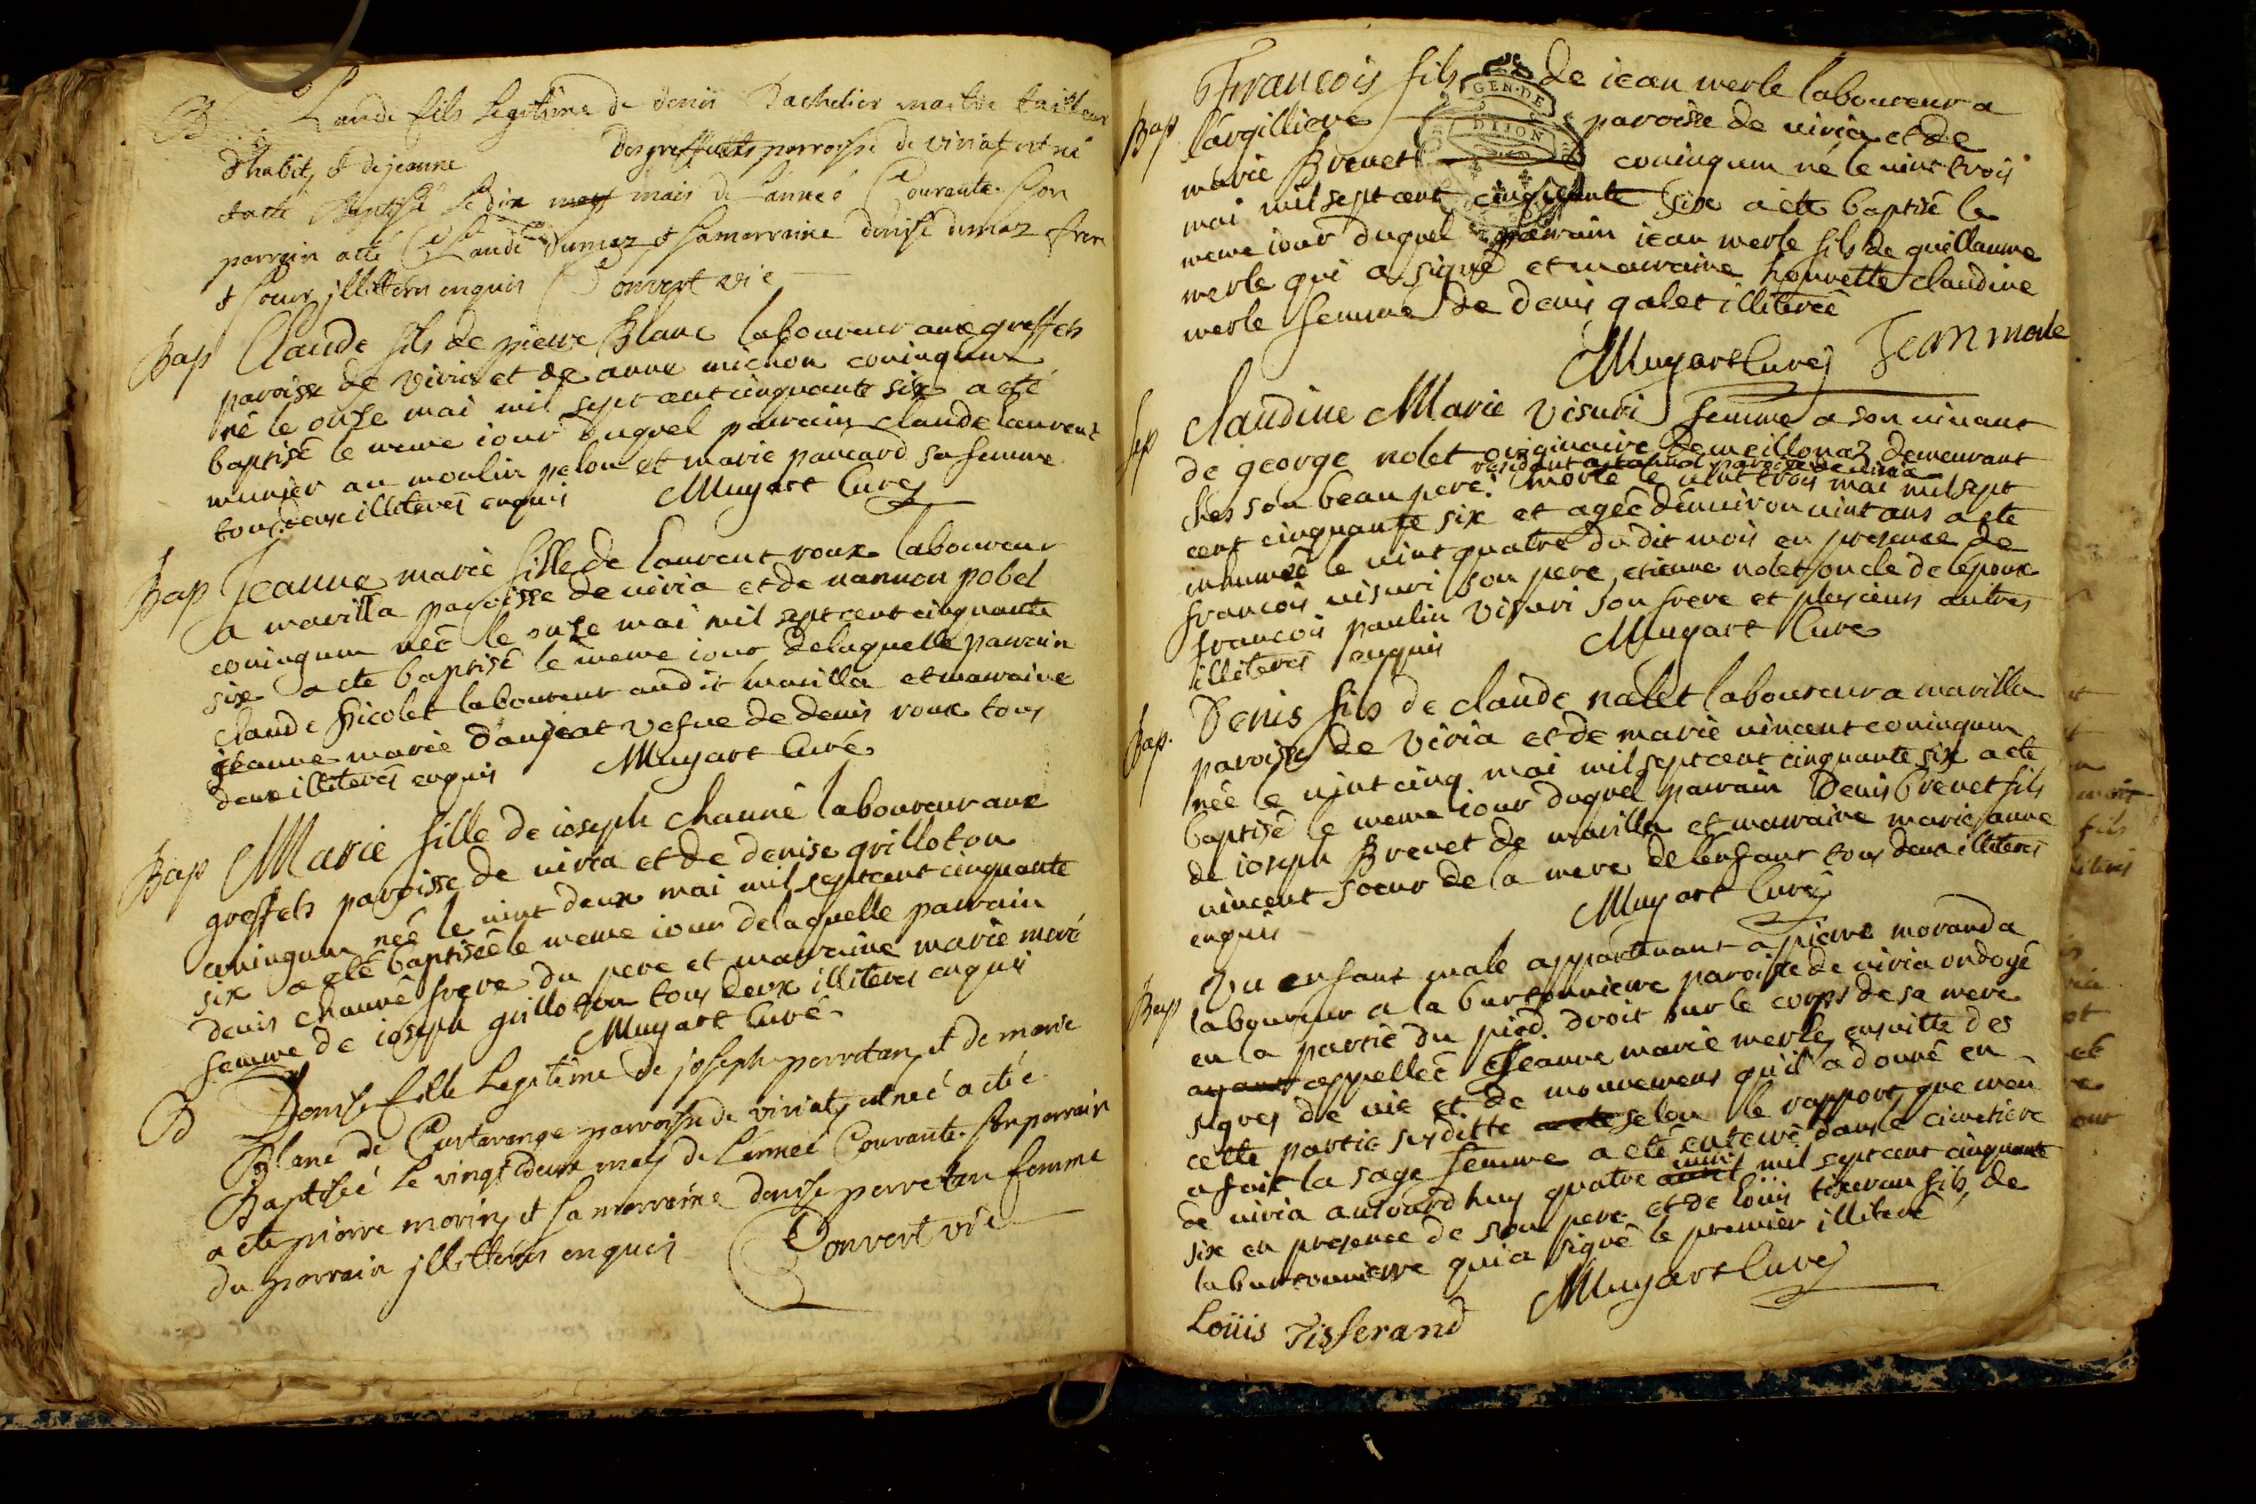 B Laude fils Legitime de denis Bachelier maitre tailleur
d'habits & de jeanne des greffets parroisse de viriat est né
baptisé le dix mais de L'année Courante. son
parrain a été Claude Dumaz & sa marraine denise dumaz frere
& soeur jllitterés enquis Convert vic
Bap Claude fils de pierre Blanc laboureur aux greffets
paroisse de viria et de anne michon conioigum
né le onse mai mil sept cent cinquante six a eté
baptisé le meme iour duquel parrain claude laurent
munier au moulin pelou et marie pancard sa femme
tous deux illiterés enquis Muyart Curé
Bap Jeanne marie fille de laurent roux laboureur
a marilla paroisse de viria et de nannon pobel
conioigum neé le onse mai mil sept cent cinquante
six a ete baptisé le meme iour delaquelle parrain
claude Nicolet laboureur audit marilla et marraine
jeanne marie danjeat vefue de denis roux tous
deux illiterés enquis Muyart Curé
Bap Marie fille de ioseph channé laboureur aux
greffets paroisse de viria et de denise grilloton
conioigum neé le vint deux mai mil sept cent cinquante
six a eté baptisée le meme iour delaquelle parrain
denis channé frere du pere et marraine marie moré
femme de ioseph grilloton tous deux illiteres enquis
Muyart Curé
B Denise fille Legitime de joseph perretan & de marie
Blanc de Curtarange parroisse de viriat, est neé a etée
Baptiseé le vingt deux may de L'anneé Courante. son parrain
a eté pierre morin & sa marraine denise perretan femme
du parrain jllitterés enquis Convert vic
Bap Francois fils de iean merle laboureur a
l'argilliere paroisse de viria et de
marie Brevet conioigum né le vint trois
mai mil sept cent cinquante six a ete baptisé le
meme iour duquel parrain iean merle fils de guillaume
merle qui a signé et marraine henriette claudine
merle femme de denis galet illitereé
Muyart Curé Jean merle
Sep Claudine Marie visuri femme a son vivant
de george nolet originaire de meillonaz demeurant
residant a paroisse de viria
ches son beau pere. morte le vint trois mai mil sept
cent cinquante six et ageé denviron vint ans a ete
inhumeé le vint quatre du dit mois en presence de
francois visuri son pere, etienne nolet oncle de lepoux
francois paulin visuri son frere et plusieurs autres
illiterés enquis Muyart Curé
Bap. Denis fils de claude nalet laboureur a marilla
paroisse de viria et de marie vincent conioigum
neé le vint cinq mai mil sept cent cinquante six a ete
baptisé le meme iour duquel parrain Denis brevet fils
de ioseph Brevet de marilla et marraine marie anne
vincent soeur de la mere de lenfant tous deux illiterés
enquis Muyart Curé
Bap Un enfant male appartenant a pierre morand a
laboureur a la burtonniere paroisse de viria ondoyé
en la partie du pied droit sur le corps de sa mere
ayant appelleé Jeanne marie merle ensuitte des
signes de vie et de mouvemens qu'il a donné en
cette partie susditte a ete selon le rapport que men
a fait la sage femme a eté enterré dans le cimetiere
de viria aujourdhuy quatre mai mil sept cent cinquante
six en presence de son pere et de loüis tisseran fils de
laburtonniere qui a signé le premier illiteré
Loüis Tisserand Muyart Curé
GEN·DE
DIJON